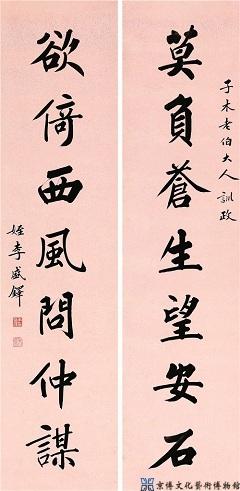 子木老伯大人 訓政
莫負蒼生望安石
欲倚西風問仲謀
姪李盛鐸
京傳文化藝術博物館